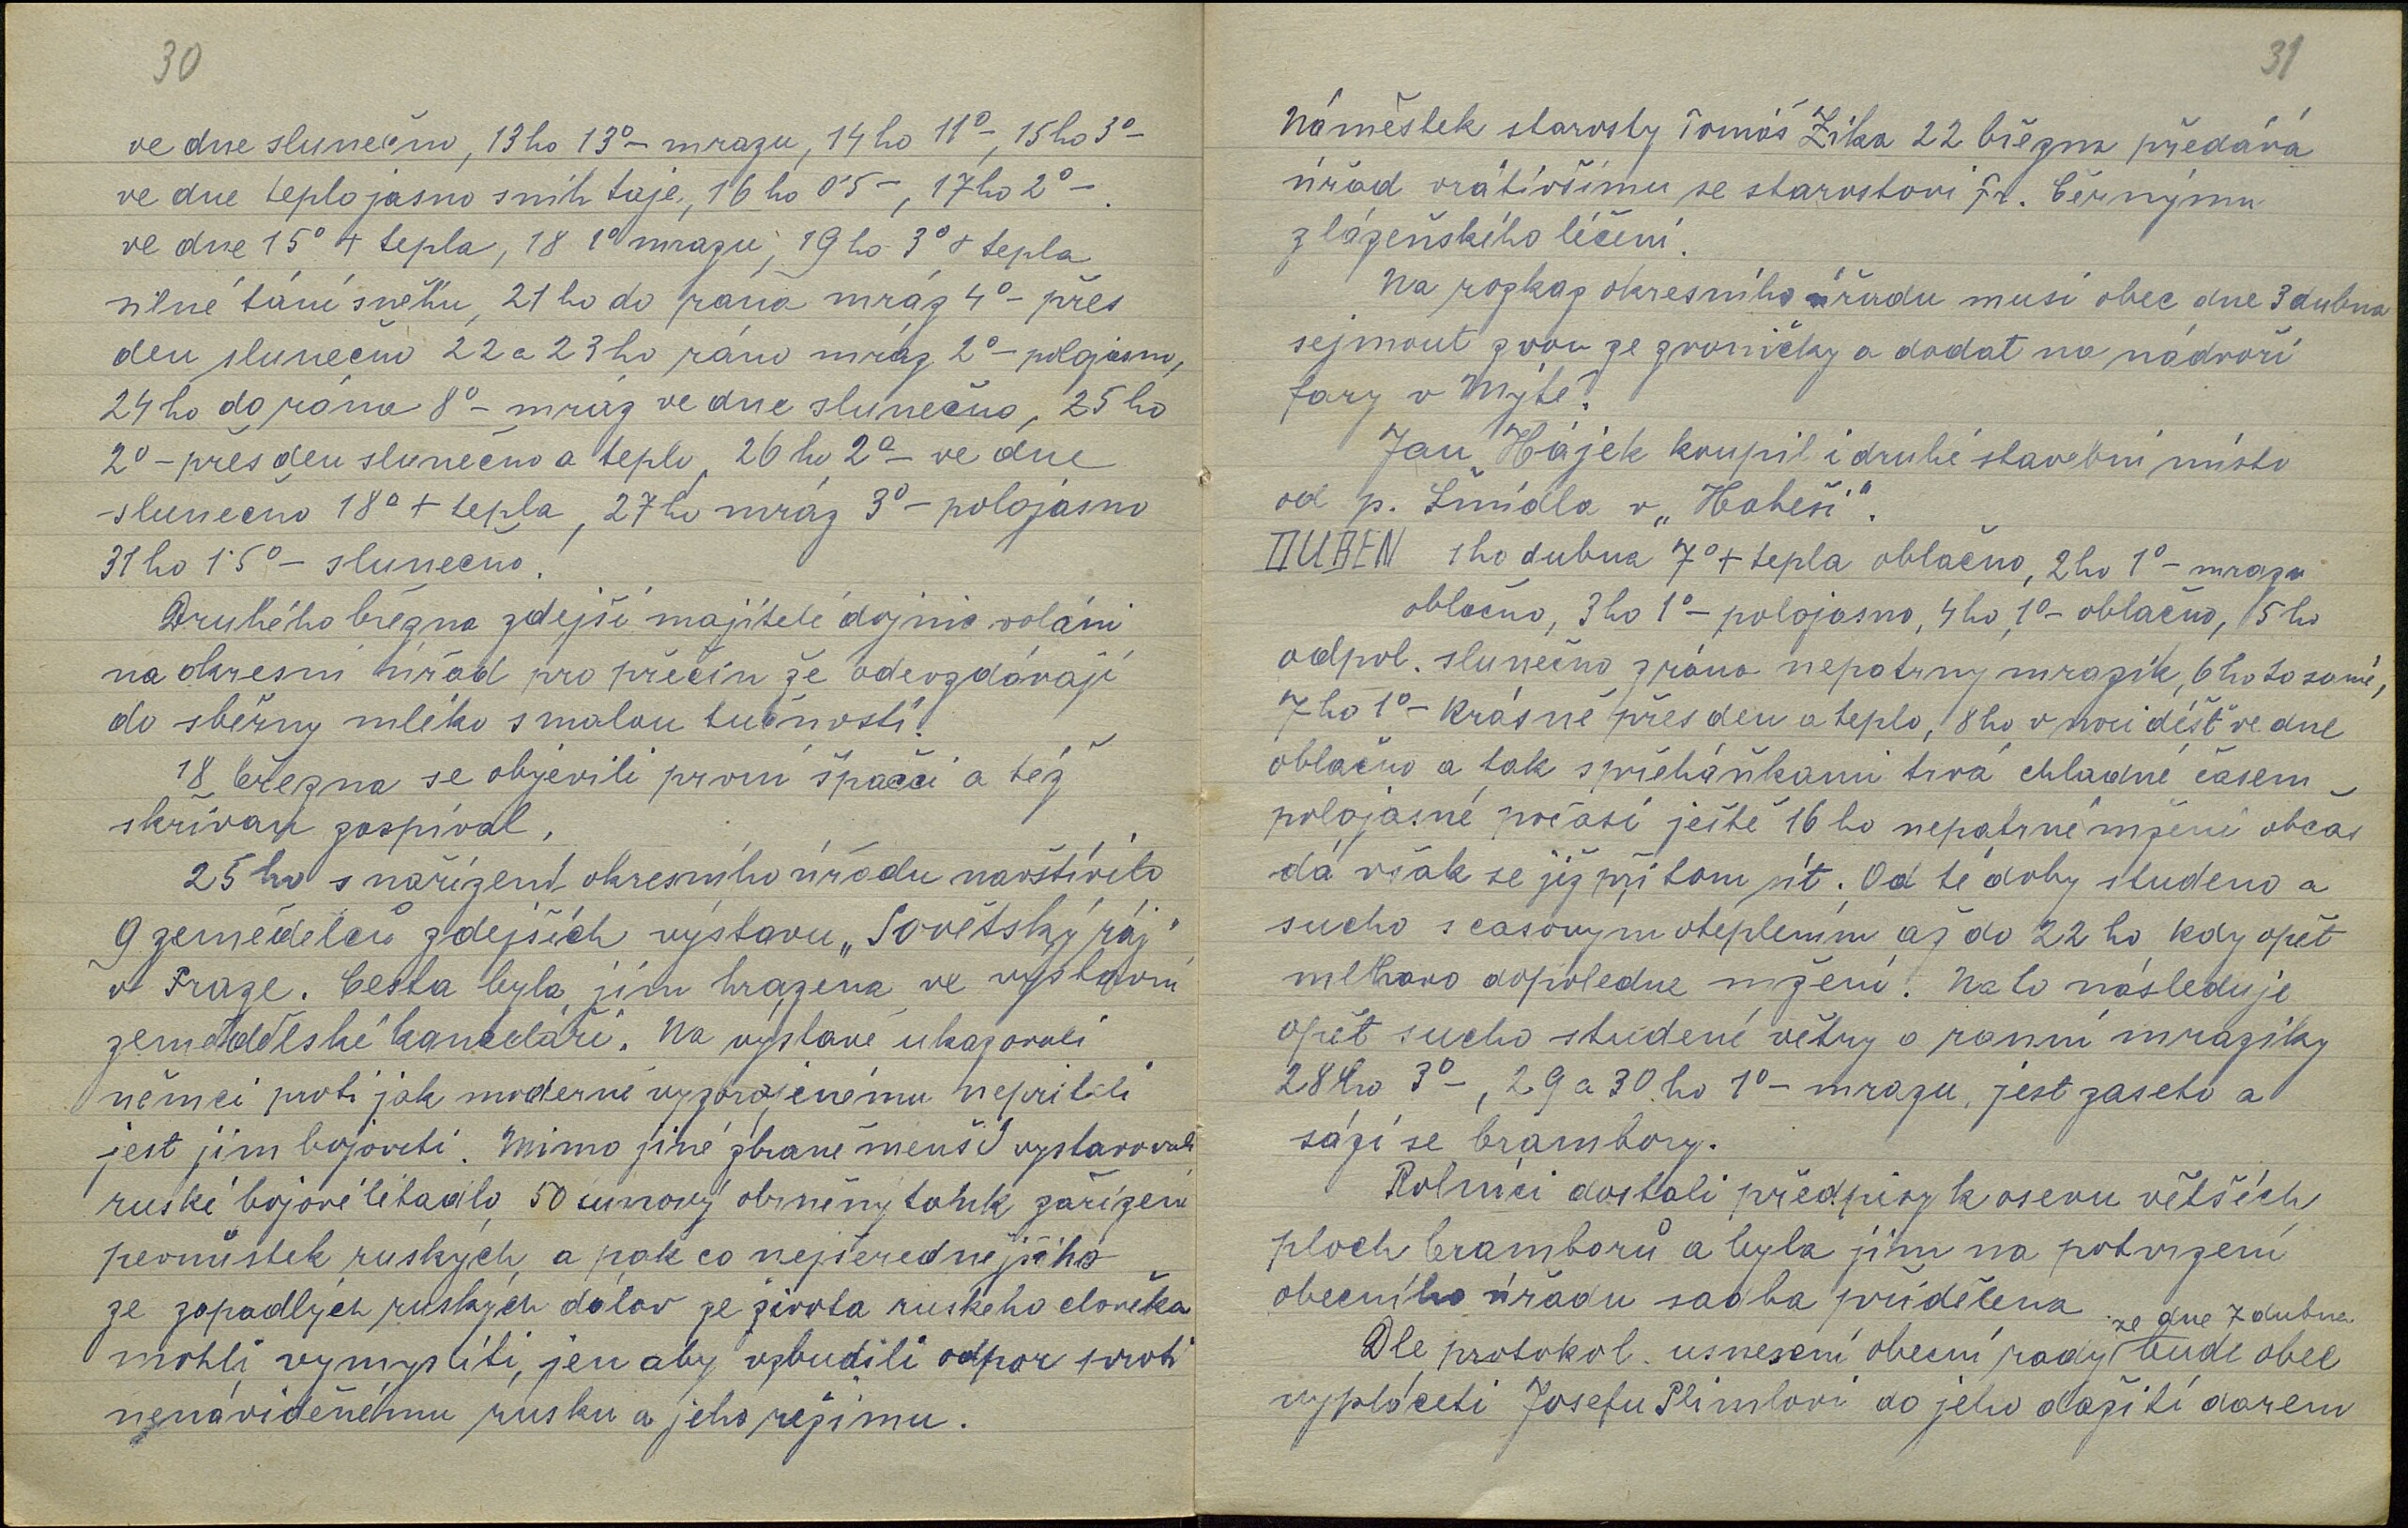 30
ve dne slunečno, 13ho 13°- mrazu, 14ho 11°-, 15ho 3°-
ve dne teplo jasno sníh taje, 16ho 0'5-, 17ho 2°-.
ve dne 15°+ tepla, 18 1° mrazu, 19ho 3°+ tepla
silné tání sněhu, 21ho do rána mráz 4°- přes
den slunečno 22 a 23ho ráno mráz 2°- polojasno,
24ho do rána 8°- mráz ve dne slunečno, 25ho
2°- přes den slunečno a teplo, 26ho 2°- ve dne
slunečno 18°+ tepla, 27ho mráz 3°- polojasno
31ho 1'5°- slunečno.
Druhého března zdejší majitelé dojnic voláni
na okresní úřad pro přečin že odevzdávají
do sběrny mléko s malou tučností.
18 března se objevili první špačci a též
skřivan zaspíval.
25ho s nařízení okresního úřadu navštívilo
9 zemědělců zdejších výstavu „Sovětský ráj"
v Praze. Cesta byla jim hrazena ve výstavní
zemědělské kanceláři. Na výstavě ukazovali
němci proti jak moderně vyzbrojenému nepříteli
jest jim bojovati. Mimo jiné zbraně menší vystavovali
ruské bojové létadlo, 50 tunový obrněný tank zařízení
pevnůstek ruských, a pak co nejšerednějšího
ze zapadlých ruských dálav ze života ruského clověka
mohli vymysliti, jen aby vzbudili odpor proti
nenáviděnému rusku a jeho režimu.
31
Náměstek starosty Tomáš Zíka 22 března předává
úřad vrátivšímu se starostovi Fr. Černýmu
z lázeňského léčení.
Na rozkaz okresního úřadu musí obec dne 3 dubna
sejmout zvon ze zvoničky a dodat na nádvoří
fary v Mýtě.
Jan Hájek koupil i druhé stavební místo
od p. Šmídla v „Habeši".
DUBEN 1ho dubna 7°+ tepla oblačno, 2ho 1°- mrazu
oblačno, 3ho 1°- polojasno, 4ho 1°- oblačno, 5ho
odpol. slunečno zrána nepatrny mrazík, 6ho to samé,
7ho 1°- krásně přes den a teplo, 8ho v noci déšť ve dne
oblačno a tak s přeháňkami trvá chladné časem
polojasné počasí ještě 16ho nepatrné mžení občas
dá však se již při tom sít. Od té doby studeno a
sucho s časovým oteplením až do 22ho, kdy opět
mlhavo dopoledne mžení. Na to následuje
opět sucho studené větry a ranní mrazíky
28ho 3°-, 29 a 30.ho 1°- mrazu, jest zaseto a
sází se brambory.
Rolníci dostali předpisy k osevu větších
ploch bramborů a byla jim na potvrzení
obecního úřadu sadba přidělena
ze dne 7 dubna
Dle protokol. usnesení obecní rady bude obec
vypláceti Josefu Plimlovi do jeho dožití darem